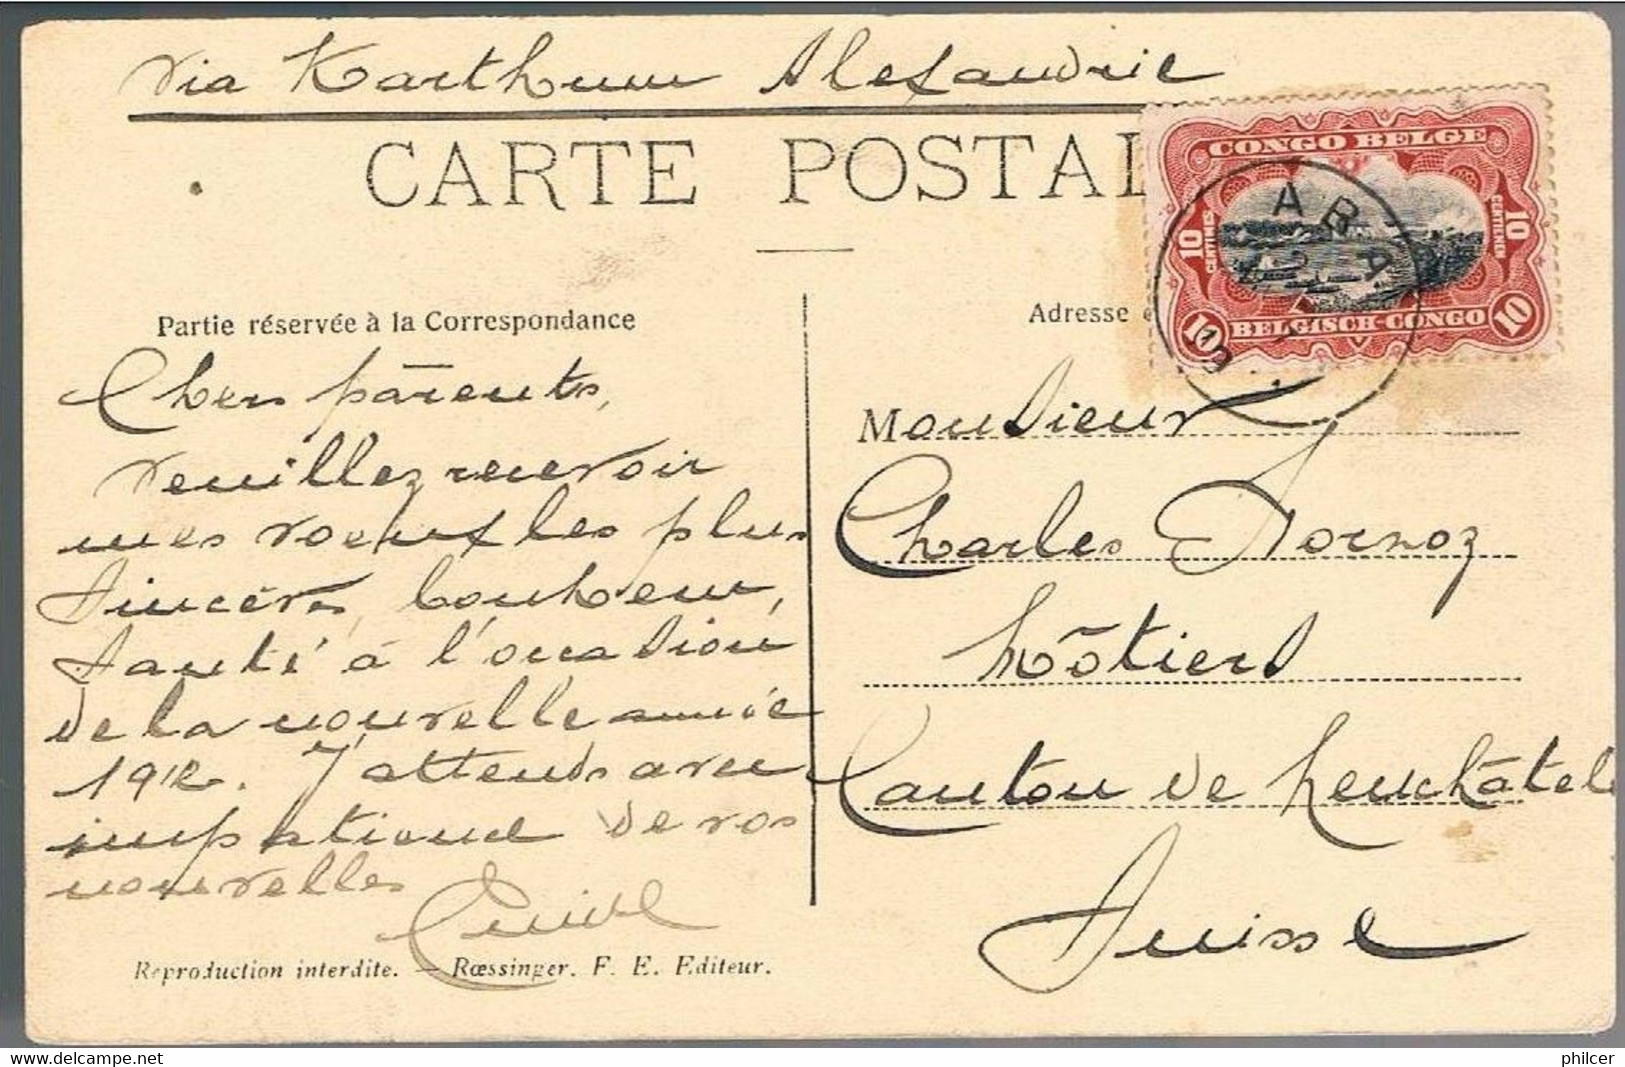 via Karthum Alexandrie
CARTE POSTAL
CONGO BELGE
10 CENTIMES
10 CENTIEMEN
10 BELGISCH-CONGO 10
ABA
Partie réservée à la Correspondance
Adresse
Chers parents,
Veuillez recevoir
mes voeux les plus
sincères, bonheur,
santé à l'occasion
de la nouvelle année
1912. J'attends avec
impatience de vos
nouvelles
Monsieur
Charles
Môtiers
Canton de Neuchâtel
Suisse
Reproduction interdite. — Rœssinger. F. E. Editeur.
www.delcampe.net
philcer